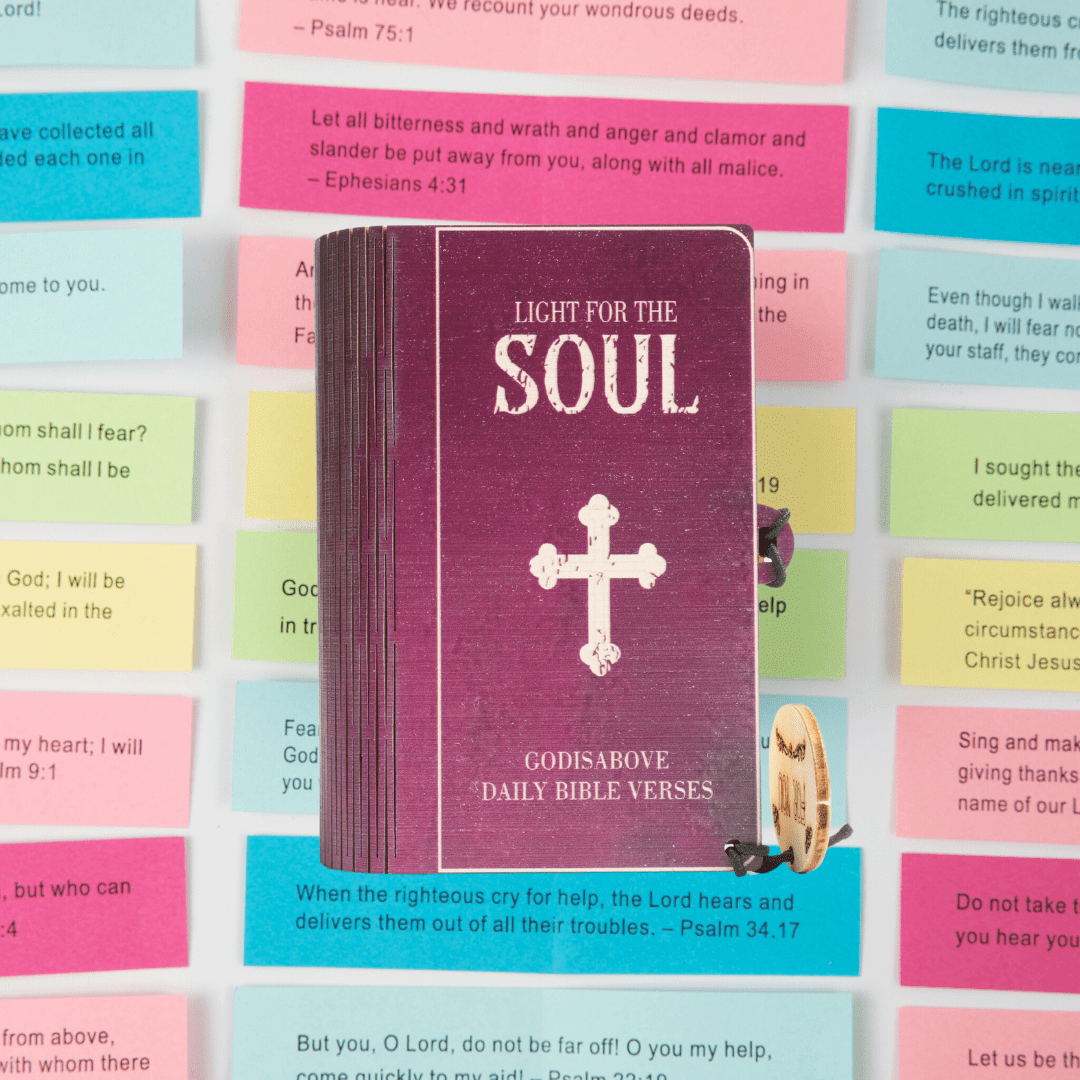 ord!
ame is near. We recount your wondrous deeds.
– Psalm 75:1
The righteous c
delivers them fro
ave collected all
ded each one in
Let all bitterness and wrath and anger and clamor and
slander be put away from you, along with all malice.
– Ephesians 4:31
The Lord is near
crushed in spirit
ome to you.
ing in
the
Fa
the
Even though I walk
death, I will fear no
your staff, they com
LIGHT FOR THE
SOUL
om shall I fear?
hom shall I be
19
I sought the
delivered m
God; I will be
xalted in the
God
in tr
elp
"Rejoice alw
circumstanc
Christ Jesus
my heart; I will
lm 9:1
Fea
God
you
Sing and mak
giving thanks
name of our L
GODISABOVE
DAILY BIBLE VERSES
, but who can
:4
When the righteous cry for help, the Lord hears and
delivers them out of all their troubles. – Psalm 34.17
Do not take t
you hear you
from above,
with whom there
But you, O Lord, do not be far off! O you my help,
come quickly to my aid! – Psalm 22:19
Let us be th